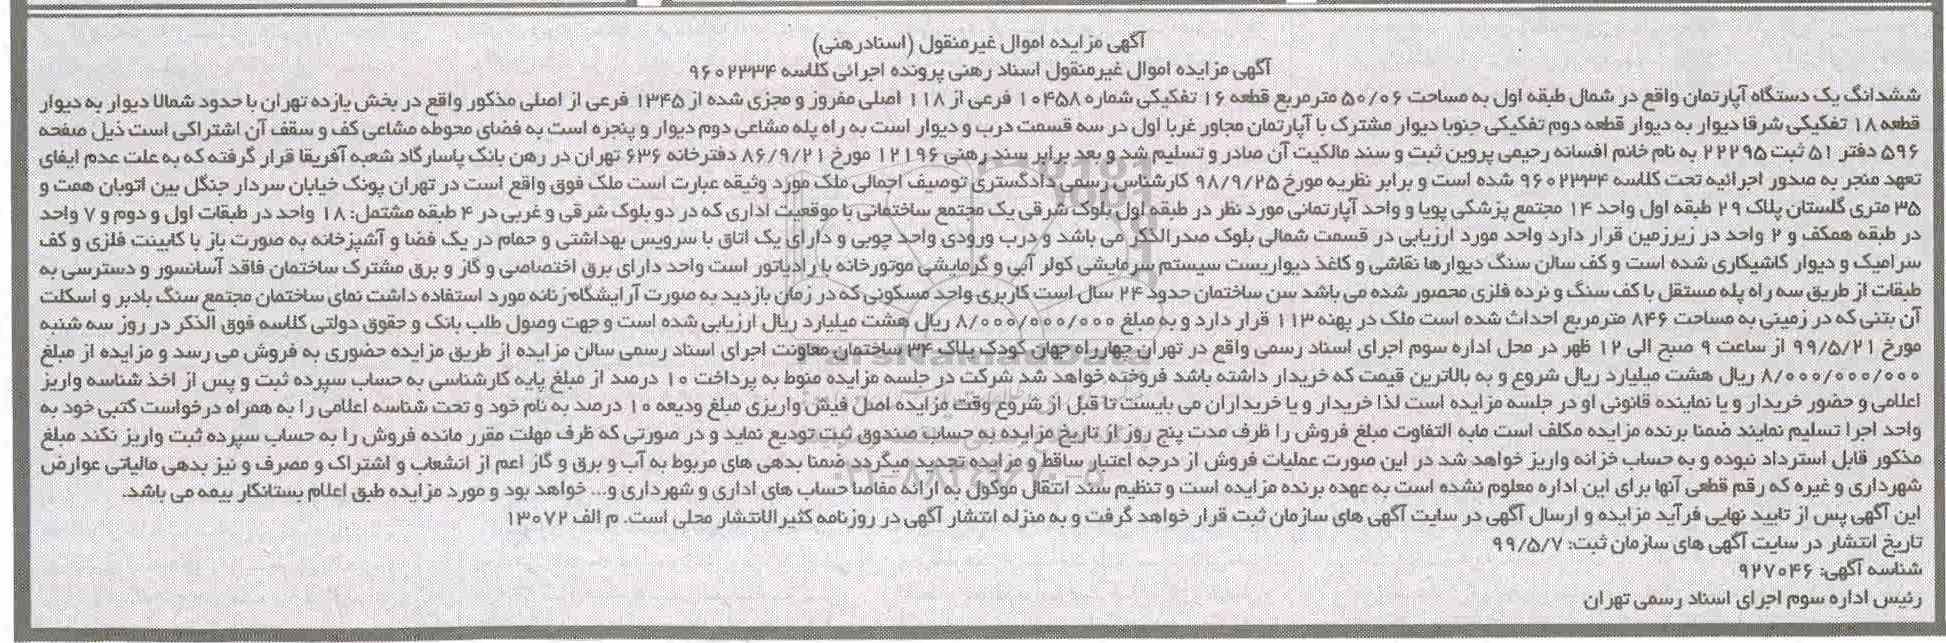 آگهی مزایده اموال غیرمنقول (اسنادرهنی)
آگهی مزایده اموال غیرمنقول اسناد رهنی پرونده اجرائی کلاسه ۹۶۰۲۳۳۴
ششدانگ یک دستگاه آپارتمان واقع در شمال طبقه اول به مساحت ۵۰/۰۶ مترمربع قطعه ۱۶ تفکیکی شماره ۱۰۴۵۸ فرعی از ۱۱۸ اصلی مفروز و مجزی شده از ۱۳۴۵ فرعی از اصلی مذکور واقع در بخش یازده تهران با حدود شمالا دیوار به دیوار
قطعه ۱۸ تفکیکی شرقا دیوار به دیوار قطعه دوم تفکیکی جنوبا دیوار مشترک با آپارتمان مجاور غربا اول در سه قسمت درب و دیوار است به راه پله مشاعی دوم دیوار و پنجره است به فضای محوطه مشاعی کف و سقف آن اشتراکی است ذیل صفحه
۵۹۶ دفتر ۵۱ ثبت ۲۲۲۹۵ به نام خانم افسانه رحیمی پروین ثبت و سند مالکیت آن صادر و تسلیم شد و بعد برابر سند رهنی ۱۲۱۹۶ مورخ ۸۶/۹/۲۱ دفترخانه ۶۳۶ تهران در رهن بانک پاسارگاد شعبه آفریقا قرار گرفته که به علت عدم ایفای
تعهد منجر به صدور اجرائیه تحت کلاسه ۹۶۰۲۳۳۴ شده است و برابر نظریه مورخ ۹۸/۹/۲۵ کارشناس رسمی دادگستری توصیف اجمالی ملک مورد وثیقه عبارت است ملک فوق واقع است در تهران پونک خیابان سردار جنگل بین اتوبان همت و
۳۵ متری گلستان پلاک ۲۹ طبقه اول واحد ۱۴ مجتمع پزشکی پویا و واحد آپارتمانی مورد نظر در طبقه اول بلوک شرقی یک مجتمع ساختمانی با موقعیت اداری که در دو بلوک شرقی و غربی در ۴ طبقه مشتمل: ۱۸ واحد در طبقات اول و دوم و ۷ واحد
در طبقه همکف و ۲ واحد در زیرزمین قرار دارد واحد مورد ارزیابی در قسمت شمالی بلوک صدرالذکر می باشد و درب ورودی واحد چوبی و دارای یک اتاق با سرویس بهداشتی و حمام در یک فضا و آشپزخانه به صورت باز با کابینت فلزی و کف
سرامیک و دیوار کاشیکاری شده است و کف سالن سنگ دیوارها نقاشی و کاغذ دیواریست سیستم سرمایشی کولر آبی و گرمایشی موتورخانه با رادیاتور است واحد دارای برق اختصاصی و گاز و برق مشترک ساختمان فاقد آسانسور و دسترسی به
طبقات از طریق سه راه پله مستقل با کف سنگ و نرده فلزی محصور شده می باشد سن ساختمان حدود ۲۴ سال است کاربری واحد مسکونی که در زمان بازدید به صورت آرایشگاه زنانه مورد استفاده داشت نمای ساختمان مجتمع سنگ بادبر و اسکلت
آن بتنی که در زمینی به مساحت ۸۴۶ مترمربع احداث شده است ملک در پهنه ۱۱۳ قرار دارد و به مبلغ ۸/۰۰۰/۰۰۰/۰۰۰ ریال هشت میلیارد ریال ارزیابی شده است و جهت وصول طلب بانک و حقوق دولتی کلاسه فوق الذکر در روز سه شنبه
مورخ ۹۹/۵/۲۱ از ساعت ۹ صبح الی ۱۲ ظهر در محل اداره سوم اجرای اسناد رسمی واقع در تهران چهارراه جهان کودک پلاک ۳۴ ساختمان معاونت اجرای اسناد رسمی سالن مزایده از طریق مزایده حضوری به فروش می رسد و مزایده از مبلغ
۸/۰۰۰/۰۰۰/۰۰۰ ریال هشت میلیارد ریال شروع و به بالاترین قیمت که خریدار داشته باشد فروخته خواهد شد شرکت در جلسه مزایده منوط به پرداخت ۱۰ درصد از مبلغ پایه کارشناسی به حساب سپرده ثبت و پس از اخذ شناسه واریز
اعلامی و حضور خریدار و یا نماینده قانونی او در جلسه مزایده است لذا خریدار و یا خریداران می بایست تا قبل از شروع وقت مزایده اصل فیش واریزی مبلغ ودیعه ۱۰ درصد به نام خود و تحت شناسه اعلامی را به همراه درخواست کتبی خود به
واحد اجرا تسلیم نمایند ضمنا برنده مزایده مکلف است مابه التفاوت مبلغ فروش را ظرف مدت پنج روز از تاریخ مزایده به حساب صندوق ثبت تودیع نماید و در صورتی که ظرف مهلت مقرر مانده فروش را به حساب سپرده ثبت واریز نکند مبلغ
مذکور قابل استرداد نبوده و به حساب خزانه واریز خواهد شد در این صورت عملیات فروش از درجه اعتبار ساقط و مزایده تجدید میگردد ضمنا بدهی های مربوط به آب و برق و گاز اعم از انشعاب و اشتراک و مصرف و نیز بدهی مالیاتی عوارض
شهرداری و غیره که رقم قطعی آنها برای این اداره معلوم نشده است به عهده برنده مزایده است و تنظیم سند انتقال موکول به ارائه مفاصا حساب های اداری و شهرداری و... خواهد بود و مورد مزایده طبق اعلام بستانکار بیمه می باشد.
این آگهی پس از تایید نهایی فرآید مزایده و ارسال آگهی در سایت آگهی های سازمان ثبت قرار خواهد گرفت و به منزله انتشار آگهی در روزنامه کثیرالانتشار محلی است. م الف ۱۳۰۷۲
تاریخ انتشار در سایت آگهی های سازمان ثبت: ۹۹/۵/۷
شناسه آگهی: ۹۲۷۰۴۶
رئیس اداره سوم اجرای اسناد رسمی تهران